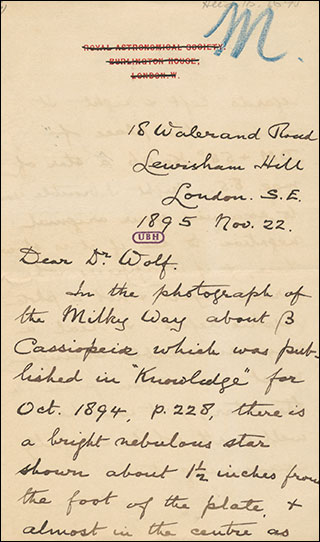 M.
ROYAL ASTRONOMICAL SOCIETY.
BURLINGTON HOUSE,
LONDON. W.
18 Walerand Road
Lewisham Hill
London. S.E.
1895 Nov. 22.
UBH
Dear Dr Wolf.
In the photograph of
the Milky Way about β
Cassiopeiæ which was pub-
lished in "Knowledge" for
Oct. 1894, p. 228, there is
a bright nebulous star
shown about 1½ inches from
the foot of the plate, &
almost in the centre as